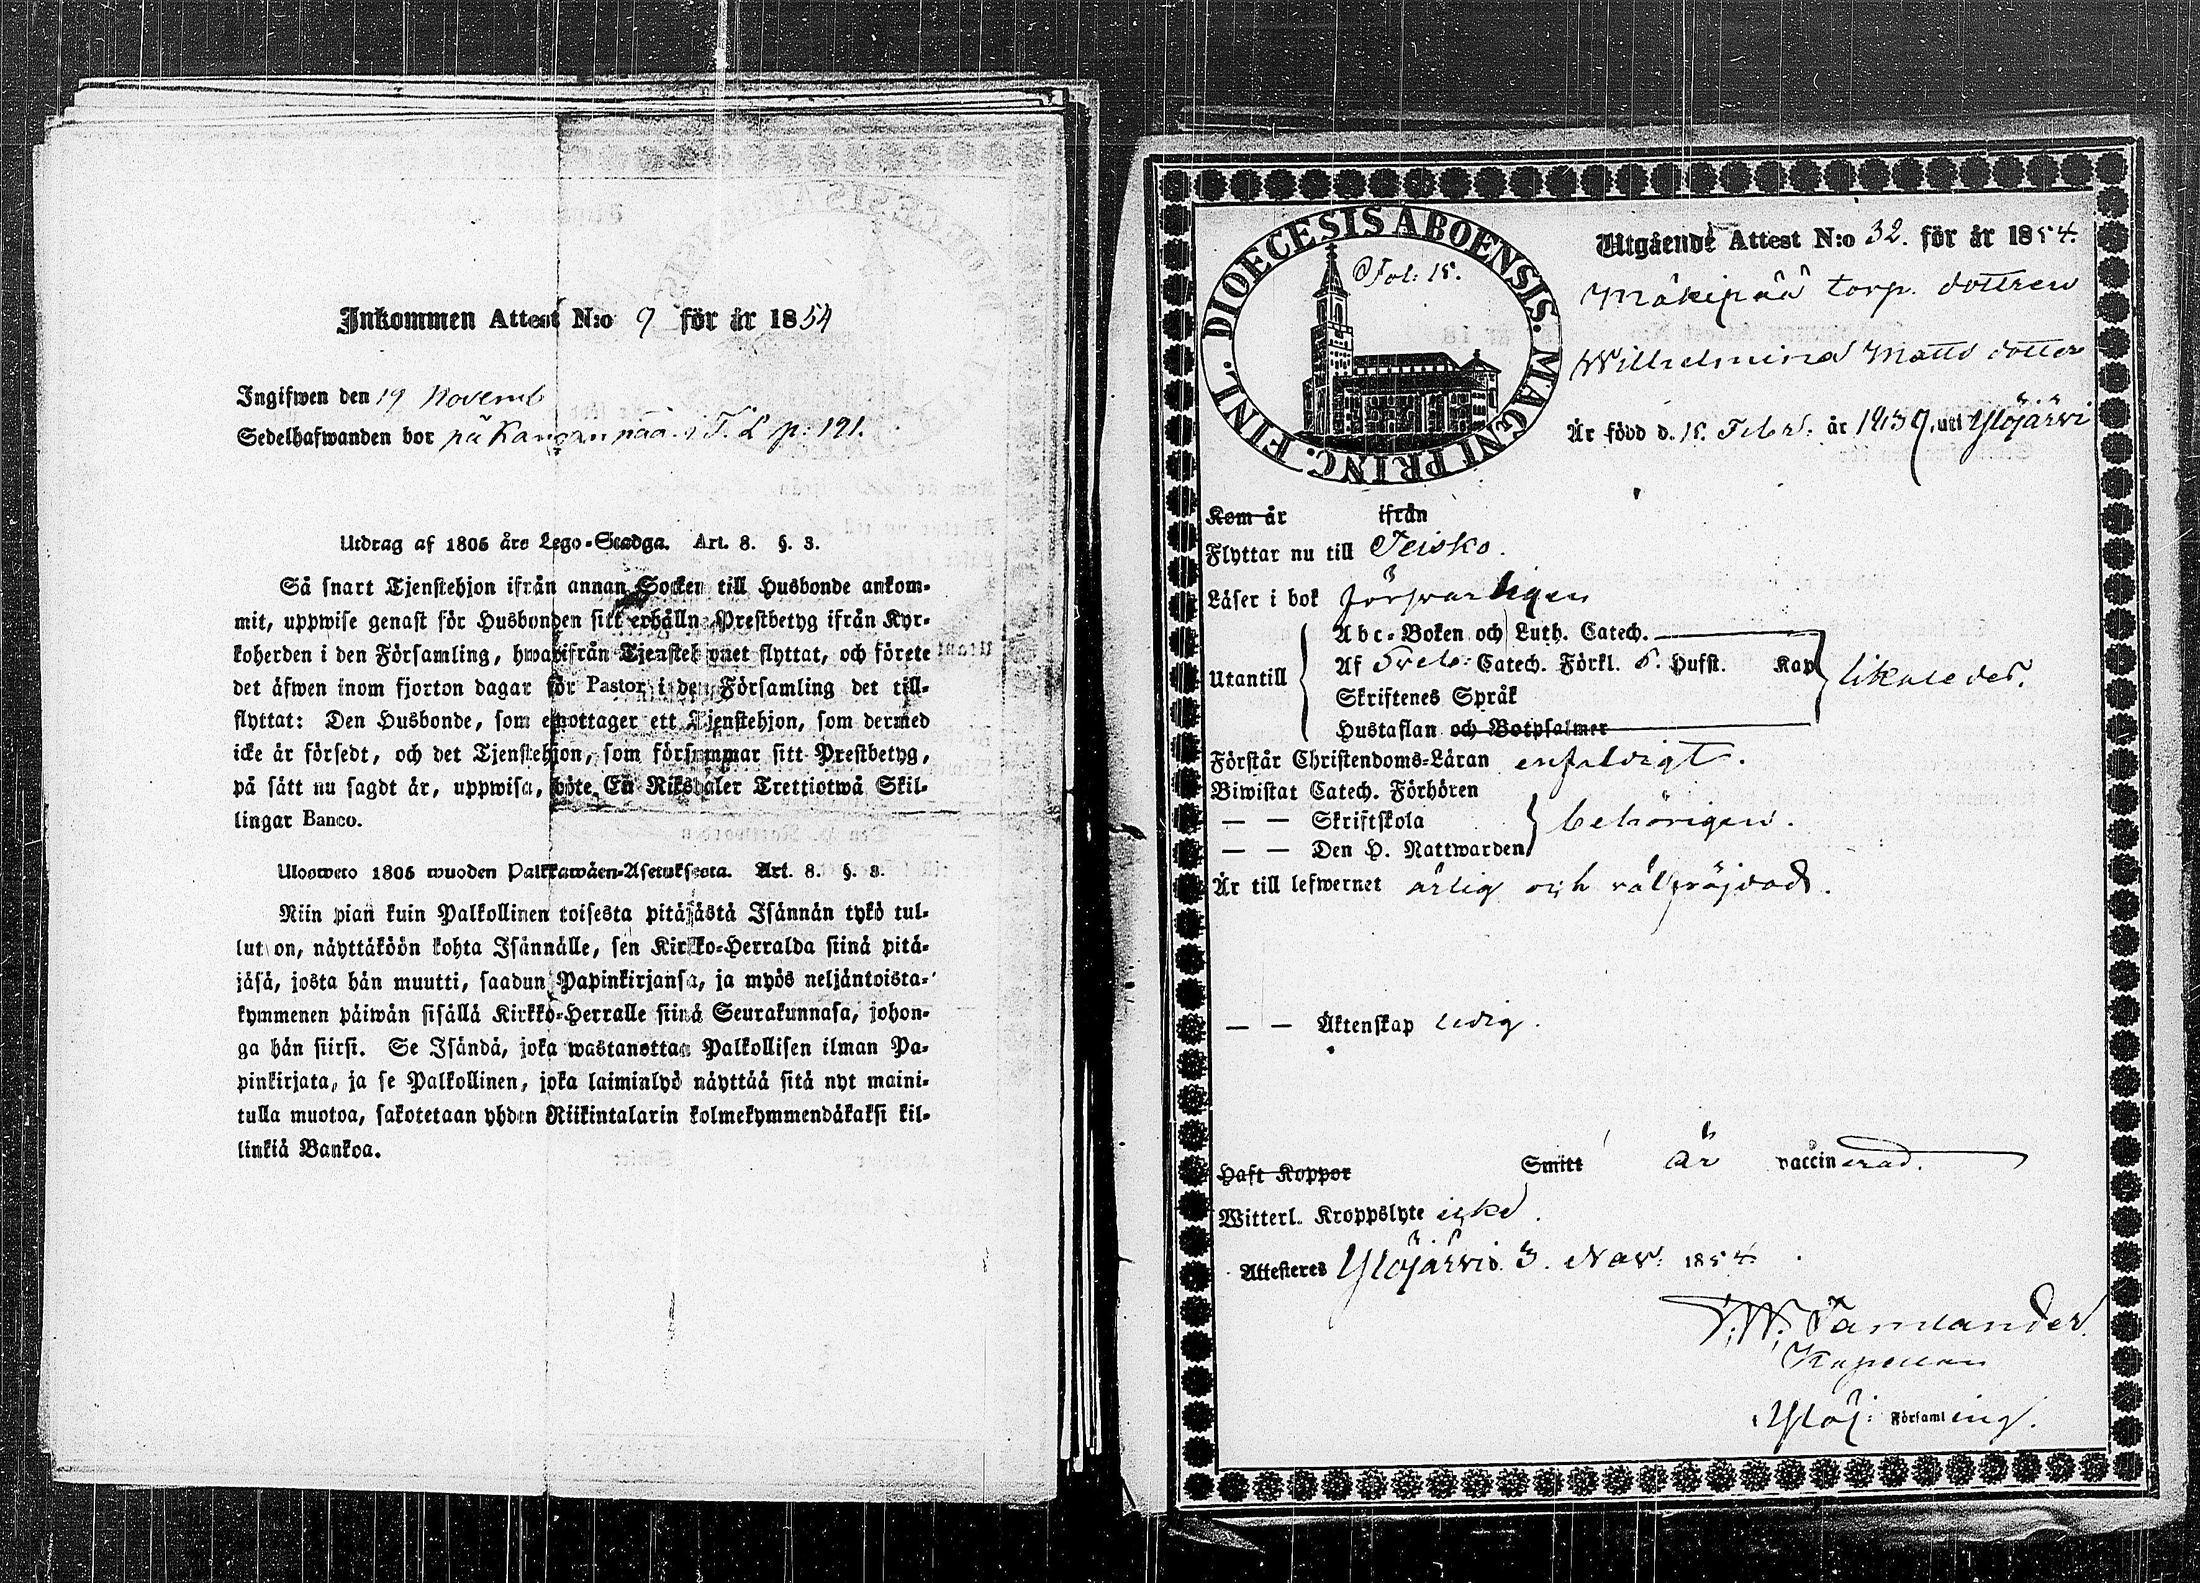 Inkommen Attest N:o 9 för år 1854
Ingifwen den 19 Novemb
Sedelhafwanden bor på Kanganpää i T. L. p. 191.
Utdrag af 1805 års Lego-Stadga. Art. 8. §. 3.
Så snart Tjenstehjon ifrån annan Socken till Husbonde ankom-
mit, uppwise genast för Husbonden sitt erhållna Prestbetyg ifrån Kyr-
koherden i den Församling, hwarifrån Tjenstehjonet flyttat, och förete
det äfwen inom fjorton dagar för Pastor i den Församling det till-
flyttat: Den Husbonde, som emottager ett Tjenstehjon, som dermed
icke är försedt, och det Tjenstehjon, som försummar sitt Prestbetyg,
på sätt nu sagdt är, uppwisa, böte En Riksdaler Trettiotwå Skil-
lingar Banco.
Ulosweto 1805 wuoden Palkkawäen-Asetuksesta. Art. 8. §. 3.
Niin pian kuin Palkollinen toisesta pitäjästä Isännän tykö tul-
lut on, näyttäköön kohta Isännälle, sen Kirkko-Herralda siinä pitä-
jäsä, josta hän muutti, saadun Papinkirjansa, ja myös neljäntoista-
kymmenen päiwän sisällä Kirkko-Herralle siinä Seurakunnasa, johon-
ga hän siirsi. Se Isändä, joka wastanottaa Palkollisen ilman Pa-
pinkirjata, ja se Palkollinen, joka laiminlyö näyttää sitä nyt maini-
tulla muotoa, sakotetaan yhden Riikintalarin kolmekymmendäkaksi kil-
linkiä Bankoa.
DIOECESIS ABOENSIS. MAGNI PRINC. FINL.
Fol: 15.
Utgående Attest N:o 32. för år 1854.
Mäkipää torp. dottren
Wilhelmina Matts dotter
Är född d. 15. Febr. år 1839, uti Ylöjärvi
Kom år ifrån
Flyttar nu till Teisko.
Läser i bok försvarligen
Abc-Boken och Luth. Catech.
Utantill Af Sveb: Catech. Förkl. 5. Hufst. Kap likaledes.
Skriftenes Språk
Hustaflan och Botpsalmer
Förstår Christendoms-Läran enfaldigt.
Biwistat Catech. Förhören
— — Skriftskola behörigen.
— — Den H. Nattwarden
Är till lefwernet ärlig och välfräjdad.
— — Äktenskap ledig.
Haft Koppor Smitt är vaccinerad.
Witterl. Kroppslyte icke.
Attesteres Ylöjärvi 3. Nov: 1854.
Kapellan
Ylöj: Församling.